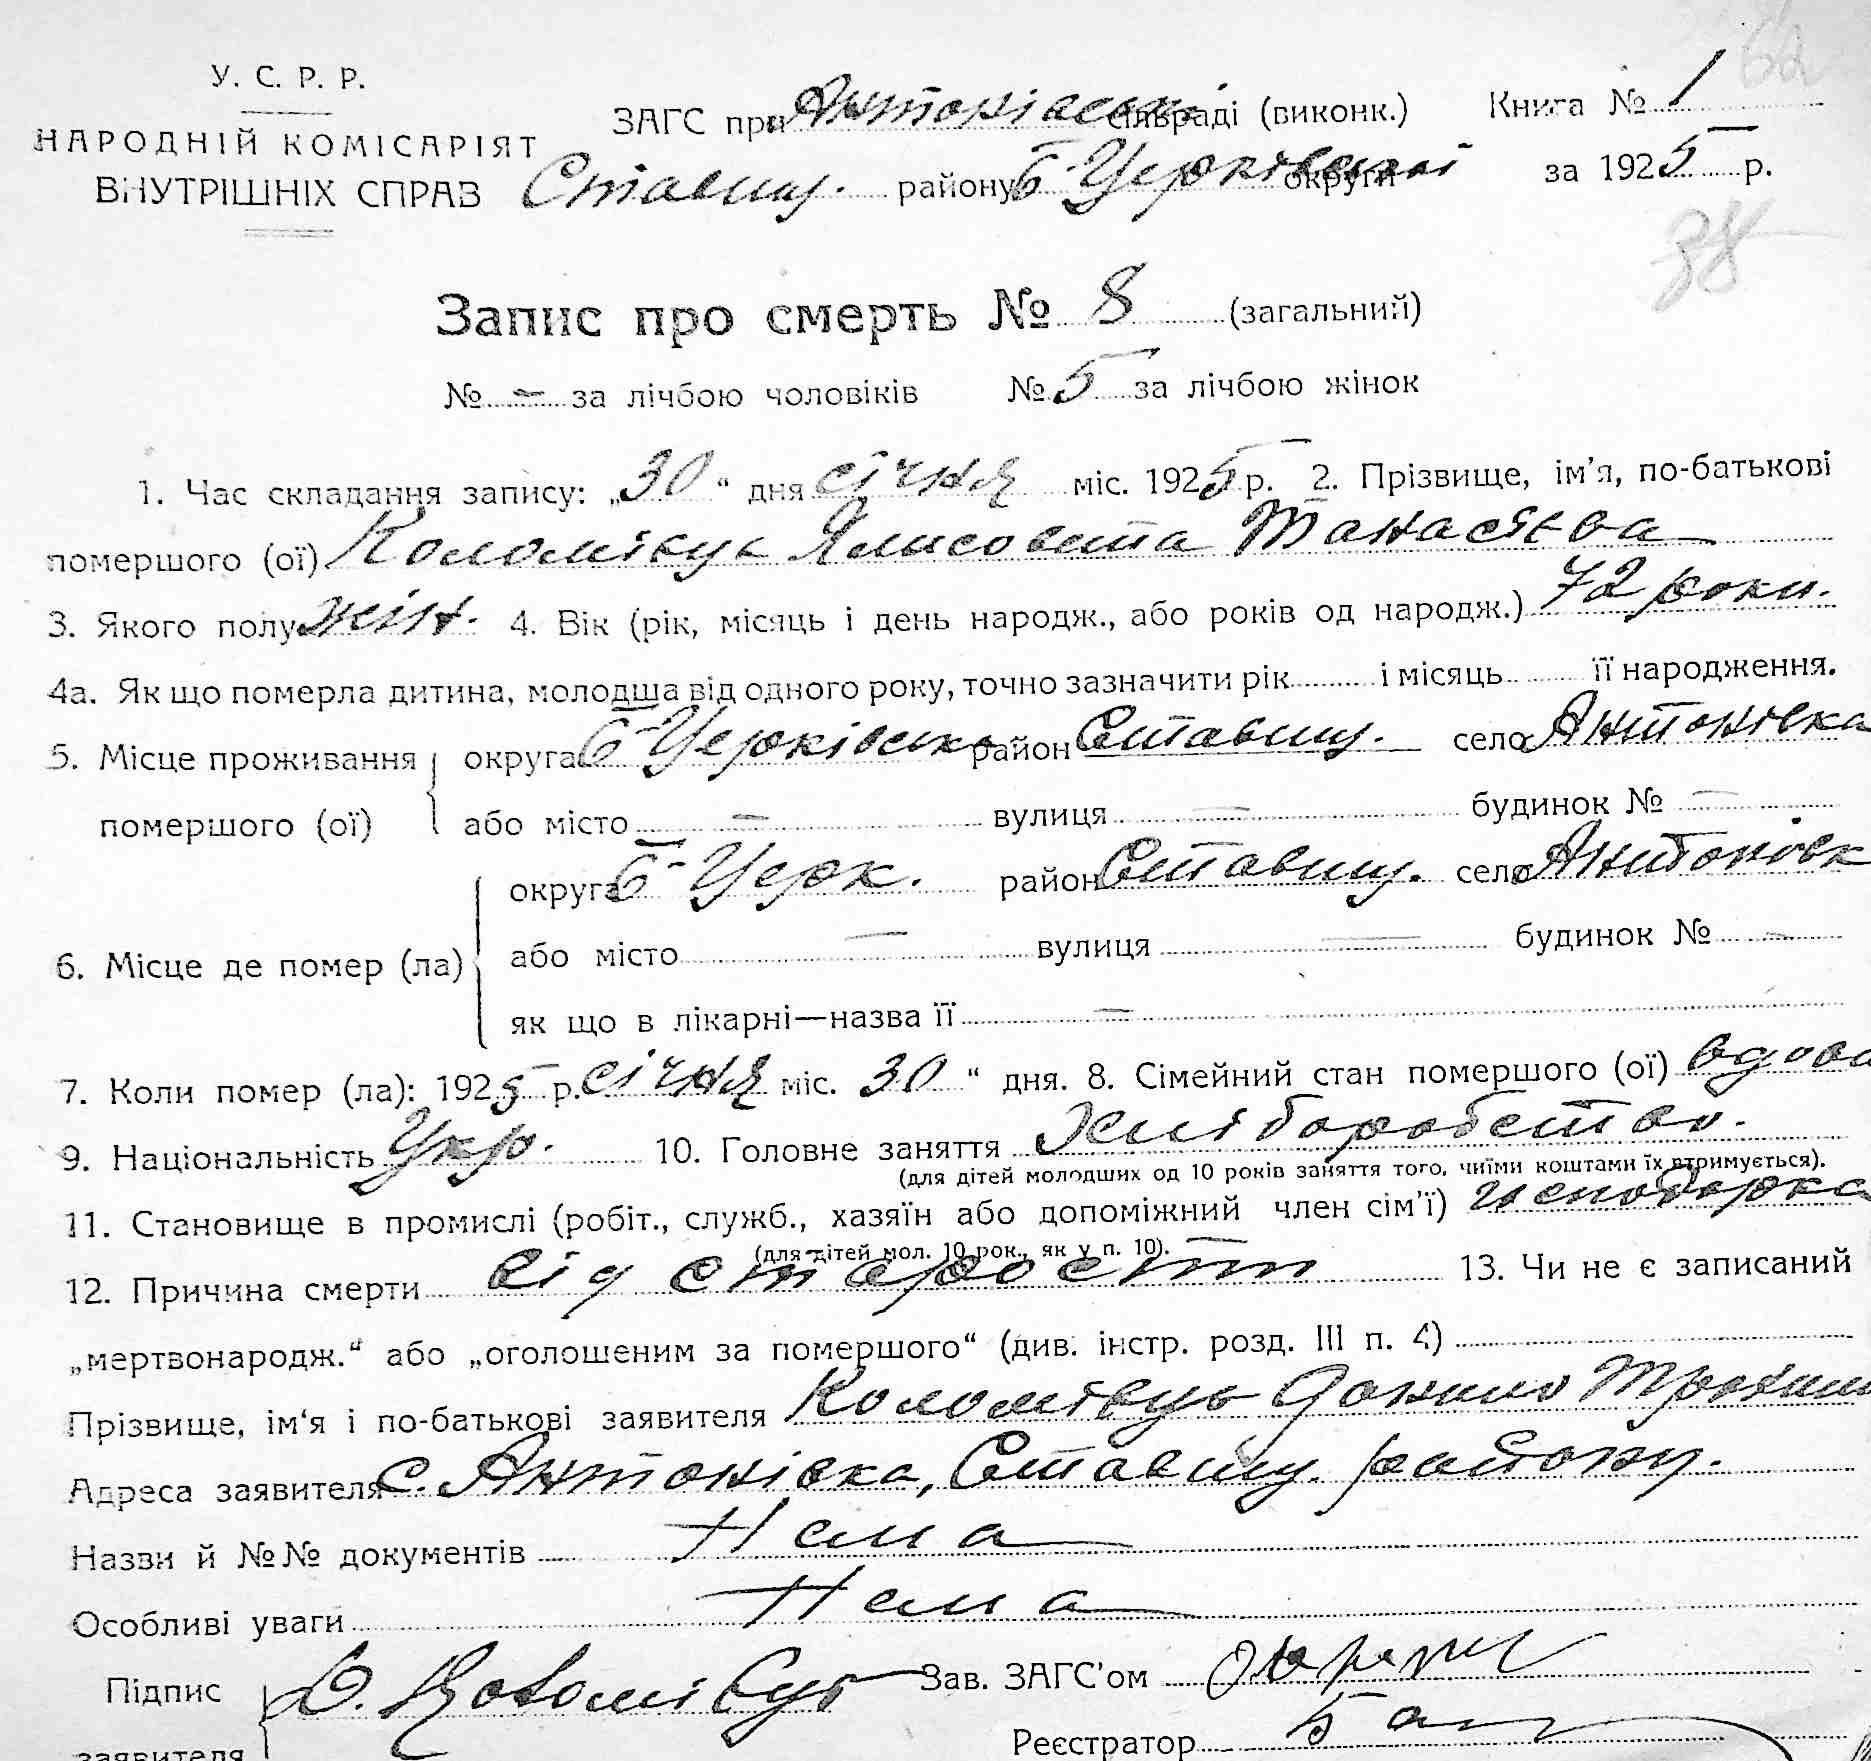 62
У. С. Р. Р.
НАРОДНІЙ КОМІСАРІЯТ
ВНУТРІШНІХ СПРАВ
ЗАГС при Антонівськ. сільраді (виконк.) Книга № 1
Ставищ. району Б-Церківської округи за 1925 р.
38
Запис про смерть № 8 (загальний)
№ – за лічбою чоловіків № 5 за лічбою жінок
1. Час складання запису: „30“ дня січня міс. 1925 р. 2. Прізвище, ім’я, по-батькові
помершого (ої) Коломієць Ялисовета Танасівва
3. Якого полу жін. 4. Вік (рік, місяць і день народж., або років од народж.) 72 роки.
4а. Як що померла дитина, молодша від одного року, точно зазначити рік і місяць її народження.
5. Місце проживання помершого (ої) округа Б-Церківська район Ставищ. село Антонівка
або місто – вулиця – будинок № –
6. Місце де помер (ла) округа Б-Церк. район Ставищ. село Антоновк
або місто – вулиця – будинок № –
як що в лікарні—назва її –
7. Коли помер (ла): 1925 р. січня міс. 30 “ дня. 8. Сімейний стан помершого (ої) вдова
9. Національність Укр. 10. Головне заняття Хліборобство.
(для дітей молодших од 10 років заняття того, чиїми коштами їх втримується).
11. Становище в промислі (робіт., служб., хазяїн або допоміжний член сім’ї)
(для дітей мол. 10 рок., як у п. 10).
12. Причина смерти від старости 13. Чи не є записаний
„мертвонародж.“ або „оголошеним за помершого“ (див. інстр. розд. III п. 4)
Прізвище, ім‘я і по-батькові заявителя Коломієць Данило Трохим
Адреса заявителя с. Антонівка, Ставищ. району.
Назви й №№ документів Нема
Особливі уваги Нема
Підпис заявителя Д. Коломієць Зав. ЗАГС’ом
Реєстратор